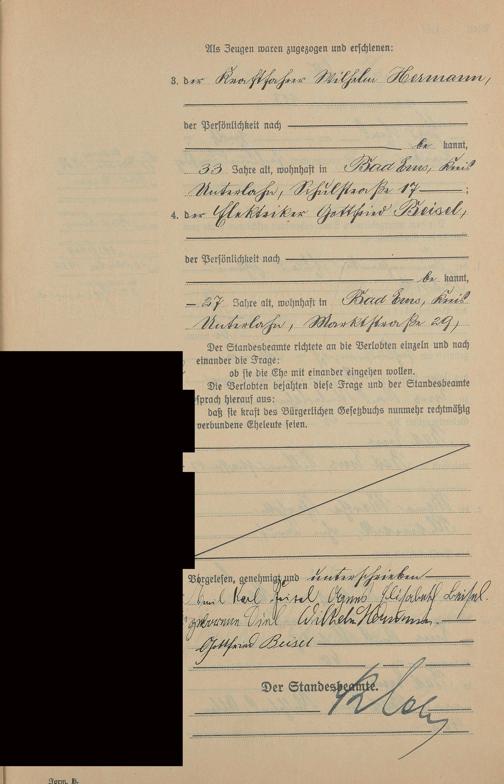 Als Zeugen waren zugezogen und erschienen:
3. der Kraftfahrer Wilhelm Hermann,
der Persönlichkeit nach
be kannt,
33 Jahre alt, wohnhaft in Bad Ems, Kreis
Unterlahn, Schulstraße 17 ;
4. der Elektriker Gottfried Beisel,
der Persönlichkeit nach
be kannt,
27 Jahre alt, wohnhaft in Bad Ems, Kreis
Unterlahn, Marktstraße 29,
Der Standesbeamte richtete an die Verlobten einzeln und nach
einander die Frage:
ob sie die Ehe mit einander eingehen wollen.
Die Verlobten bejahten diese Frage und der Standesbeamte
sprach hierauf aus:
daß sie kraft des Bürgerlichen Gesetzbuchs nunmehr rechtmäßig
verbundene Eheleute seien.
Vorgelesen, genehmigt und unterschrieben
Emil Karl Beisel Agnes Elisabeth Beisel.
geborene Wilhelm Hermann.
Gottfried Beisel
Der Standesbeamte.
Form. B.